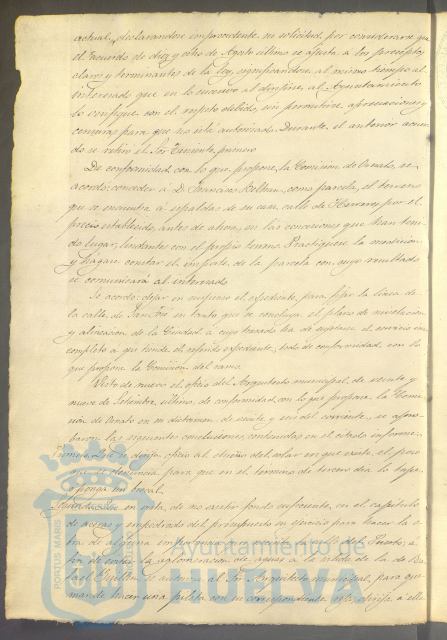 actual, declarandose improcedente su solicitud, por considerarse que
el acuerdo de diez y ocho de Agosto ultimo se ajusta a los preceptos
claros y terminantes de la ley, significandose al mismo tiempo al
interesado que en lo sucesivo al dirijirse al Ayuntamiento
lo verifique con el respeto debido sin permitirse apreciaciones y
censuras para que no está autorizado. Durante el anterior acuer
do se retiró el Sor. Teniente primero
De conformidad con lo que propone la Comision de Ornato, se
acordó: conceder á D. Francisco Beltran, como parcela, el terreno
que se encuentra á espaldas de su casa calle de por el
precio establecido, antes de ahora, en las concesiones que han teni-
do lugar, lindantes con el propio terreno. Practiquese la medicion
y hágase constar el importe de la parcela con cuyo resultado
se comunicará al interesado
Se acordó: dejar en suspenso el espediente para fijar la linea de
la calle de San José en tanto que se concluya el plano de nivelacion
y alineacion de la Ciudad á cuyo trazado ha de ajustarse el
completo a que tiende el referido espediente, todo de conformidad con lo
que propone la Comision del ramo
Visto de nuevo el oficio del Arquitecto municipal, de veinte y
nueve de Setiembre ultimo, de conformidad con lo que propone la Comi
sion de Ornato en su dictamen de veinte y seis del corriente, se apro-
baron las siguientes conclusiones, contenidas en el citado informe.
Primera: Que se dirija oficio al dueño del solar en que existe el pozo
que se denuncia para que en el termino de tercero dia lo tape
o ponga un brocal.
Segunda: Que en vista de no existir fondo suficiente, en el capitulo
de aceras y empedrado del presupuesto en ejercicio para hacer la o
bra de alguna importancia que necesita la calle del Puerto, á
fin de evitar la aglomeracion de aguas a la de la de
se autorice al Sor. Arquitecto municipal, para que
mande hacer una con su correspondiente que dirija á ella
Ayuntamiento de
HUELVA
PORTUS MARIS